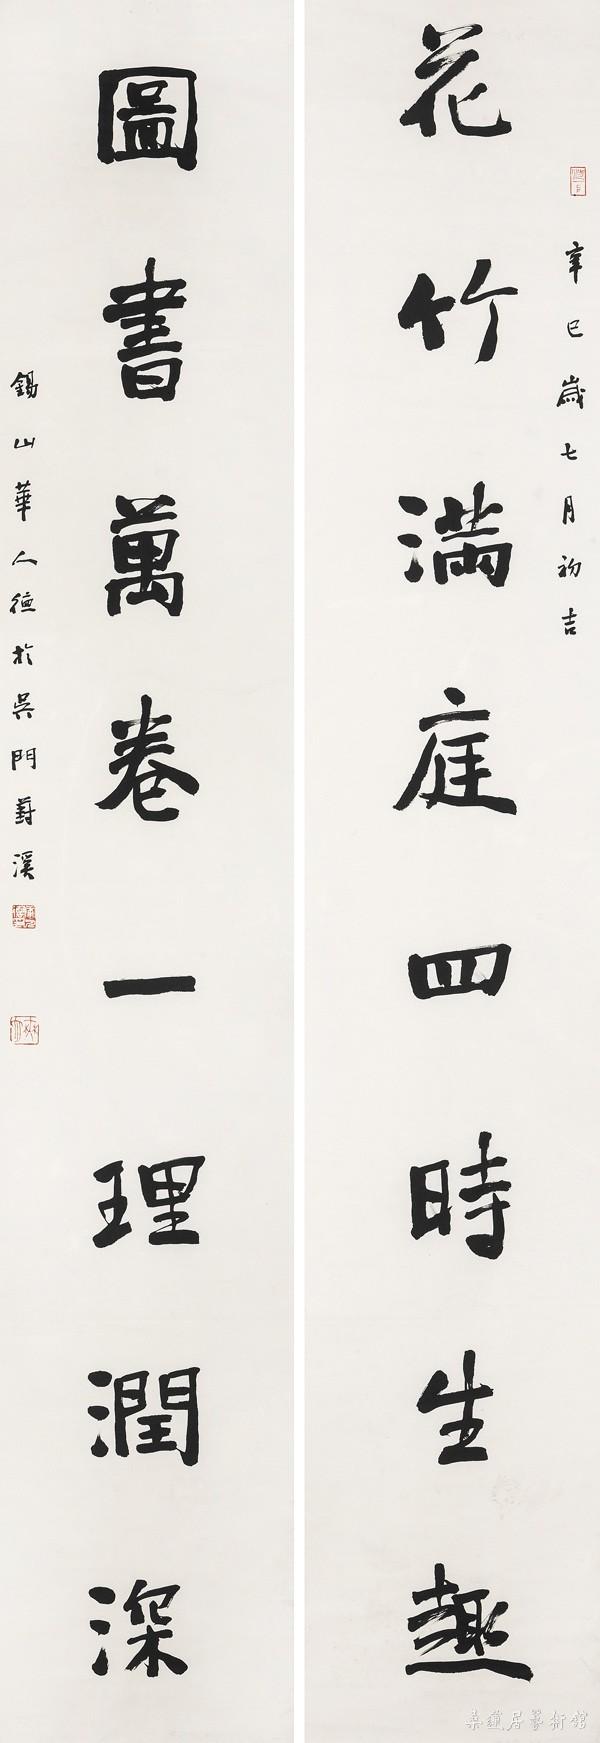 花竹滿庭四時生趣
辛巳歲七月初吉
圖書萬卷一理潤深
錫山華人德於吳門葑溪
桑蓮居藝術館